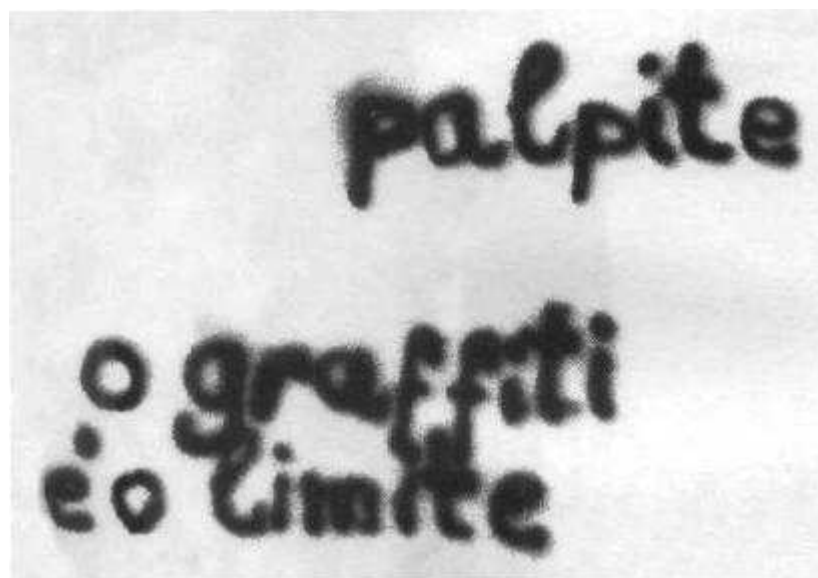 palpite
o graffiti
é o limite